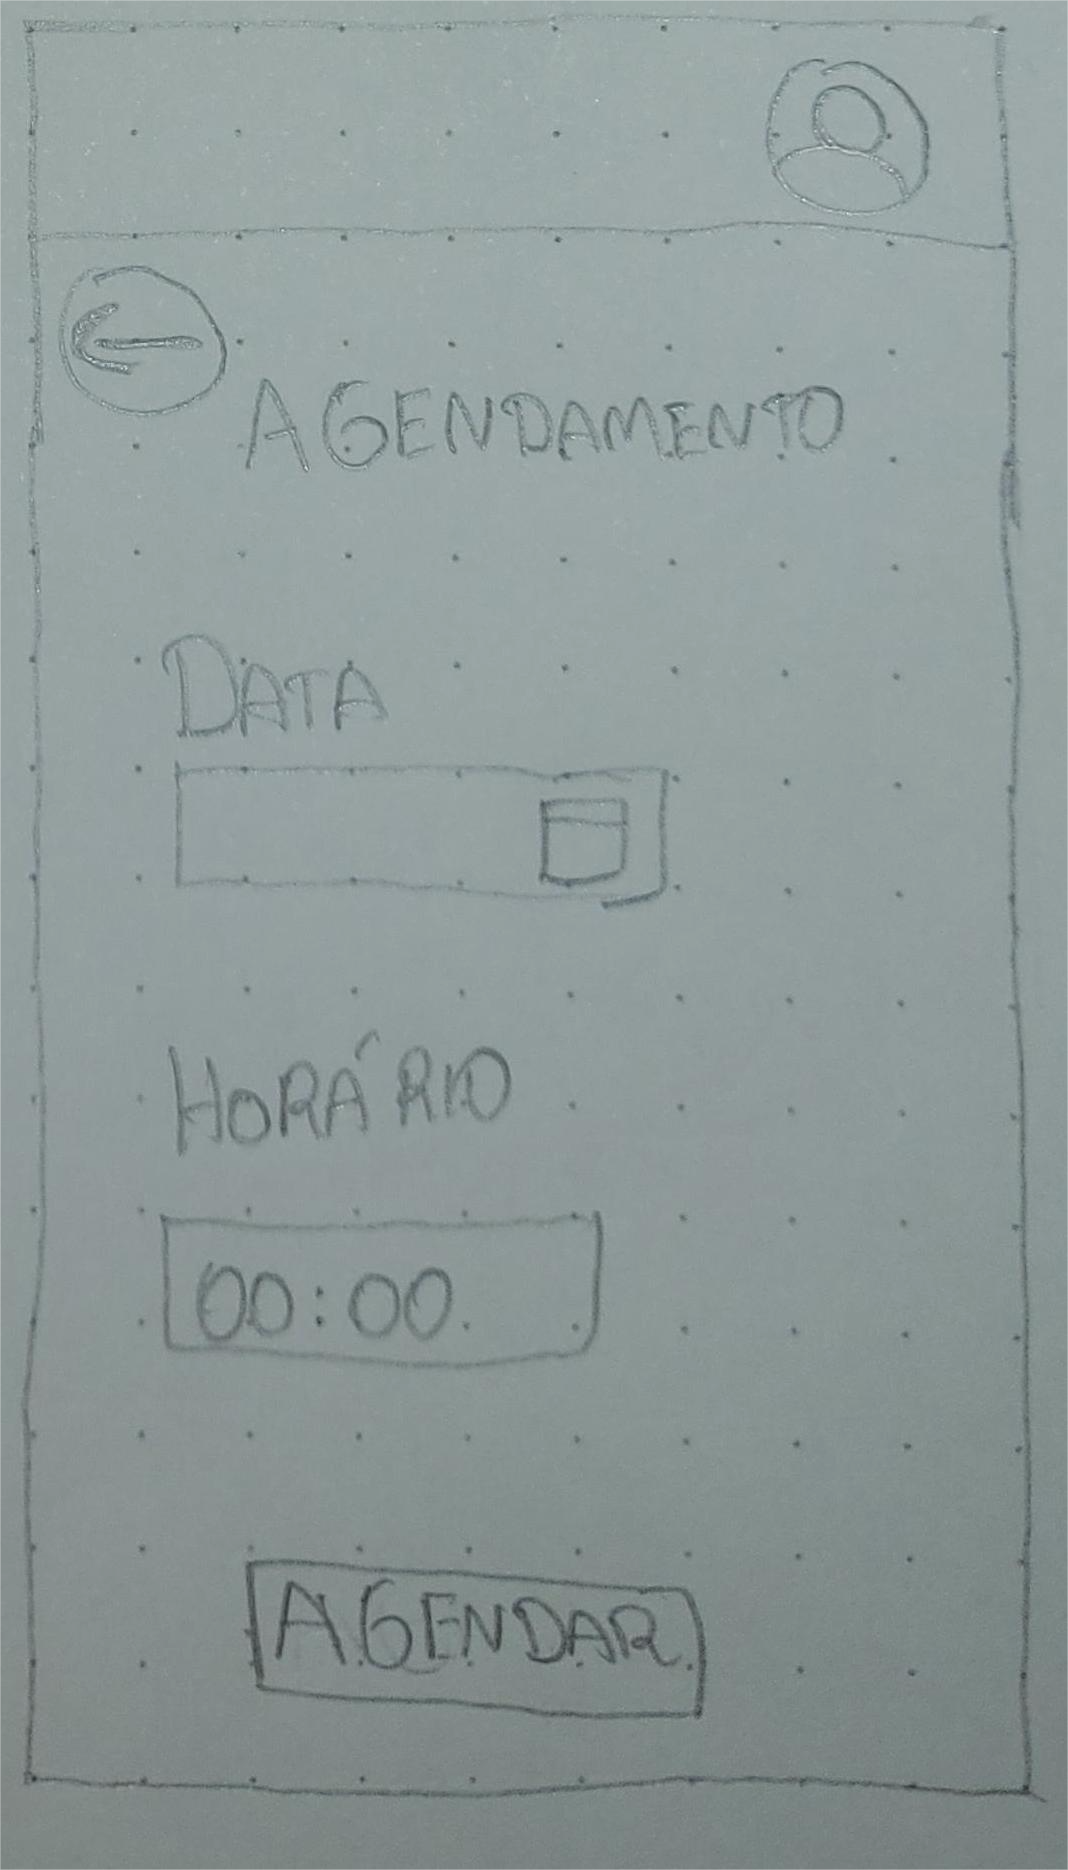 AGENDAMENTO
DATA
HORÁRIO
00:00
AGENDAR